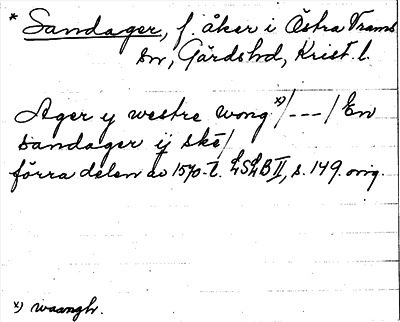 * Sandager, f. åker i Östra Trams
sn, Gärds hd, Krist. l.
Ager y westre wong x)/---/ En
sandager ij ske/
förra delen av 1570-t. LSLB II, s. 149. orig.
x) waangh.